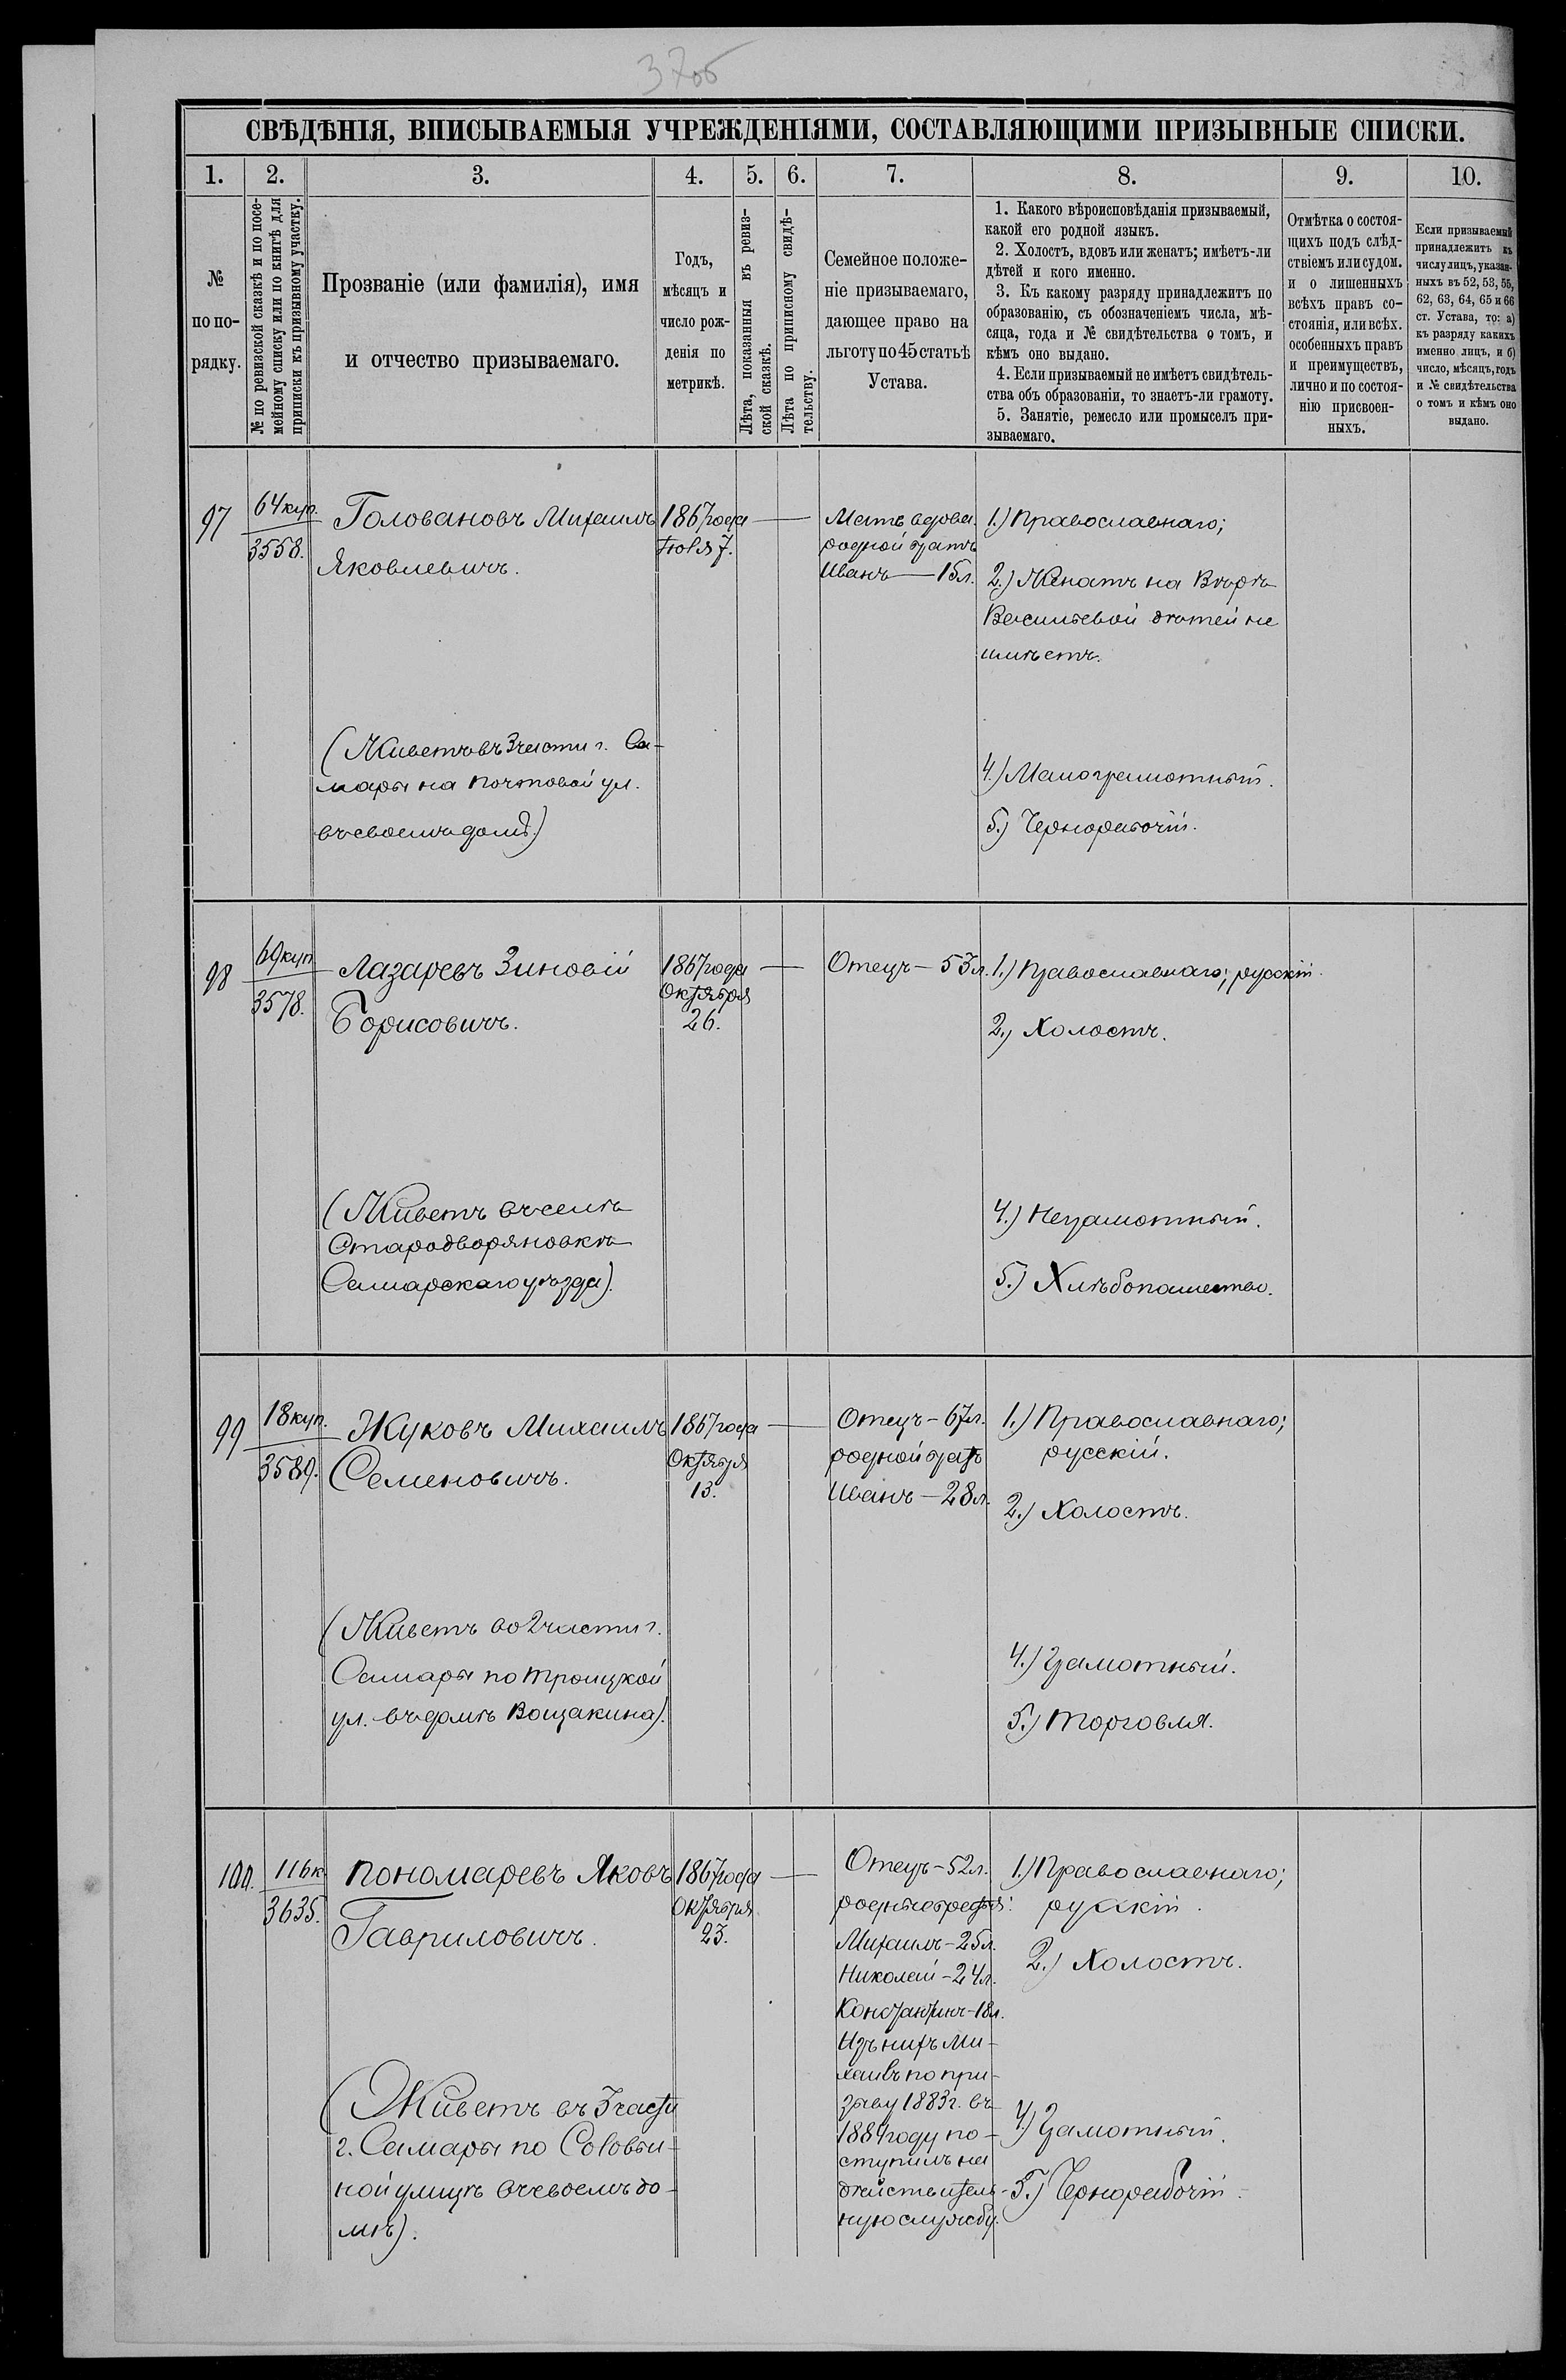 37об
СВѢДѢНІЯ, ВПИСЫВАЕМЫЯ УЧРЕЖДЕНІЯМИ, СОСТАВЛЯЮЩИМИ ПРИЗЫВНЫЕ СПИСКИ.
1.
№
по по-
рядку.
2.
№ по ревизской сказкѣ и по посе-
мейному списку или по книгѣ для
приписки къ призывному участку.
3.
Прозваніе (или фамилія), имя
и отчество призываемаго.
4.
Годъ,
мѣсяцъ и
число рож-
денія по
метрикѣ.
5.
Лѣта, показанныя въ ревиз-
ской сказкѣ.
6.
Лѣта по приписному свидѣ-
тельству.
7.
Семейное положе-
ніе призываемаго,
дающее право на
льготу по 45 статьѣ
Устава.
8.
1. Какого вѣроисповѣданія призываемый,
какой его родной языкъ.
2. Холостъ, вдовъ или женатъ; имѣетъ-ли
дѣтей и кого именно.
3. Къ какому разряду принадлежитъ по
образованію, съ обозначеніемъ числа, мѣ-
сяца, года и № свидѣтельства о томъ, и
кѣмъ оно выдано.
4. Если призываемый не имѣетъ свидѣтель-
ства объ образованіи, то знаетъ-ли грамоту.
5. Занятіе, ремесло или промыселъ при-
зываемаго.
9.
Отмѣтка о состоя-
щихъ подъ слѣд-
ствіемъ или судом.
и о лишенныхъ
всѣхъ правъ со-
стоянія, или всѣх.
особенныхъ правъ
и преимуществъ,
лично и по состоя-
нію присвоен-
ныхъ.
10.
Если призываемый
принадлежитъ къ
числу лицъ, указан-
ныхъ въ 52, 53, 55,
62, 63, 64, 65 и 66
ст. Устава, то: а)
къ разряду какихъ
именно лицъ, и б)
число, мѣсяцъ, годъ
и № свидѣтельства
о томъ и кѣмъ оно
выдано.
97
64 куп.
3558.
Головановъ Михаилъ
Яковлевичъ.
(Живетъ въ 3 части г. Са-
мары на Почтовой ул.
въ своемъ домѣ.)
1867 года
7.
Мать вдова
родной братъ
Иванъ — 15 л.
1.) Православнаго;
2.) Женатъ на Вѣрѣ
Васильевой дѣтей не
имѣетъ.
4.) Малограмотный.
5.) Чернорабочій.
98
69 куп.
3578.
Лазаревъ Зиновій
Борисовичъ.
(Живетъ въ селѣ
Стародворяновкѣ
Самарскаго уѣзда).
1867 года
Октября
26.
Отецъ — 53 л.
1.) Православнаго; русскій.
2.) Холостъ.
4.) Неграмотный.
5.) Хлѣбопашество.
99
18 куп.
3589.
Жуковъ Михаилъ
Семеновичъ.
(Живетъ во 2 части г.
Самары по Троицкой
ул. въ домѣ Вощакина).
1867 года
Октября
13.
Отецъ — 67 л.
родной братъ
Иванъ — 28 л.
1.) Православнаго;
русскій.
2.) Холостъ.
4.) Грамотный.
5.) Торговля.
100.
116 к
3635.
Пономаревъ Яковъ
Гавриловичъ.
(Живетъ въ 3 части
г. Самары по Соловьи-
ной улицѣ въ своемъ до-
мѣ).
1867 года
Октября
23.
Отецъ — 52 л.
родные братья:
Михаилъ — 25 л.
Николай — 24 л.
Константинъ — 18 л.
Изъ нихъ Ми-
хаилъ по при-
зыву 1883 г. въ
1884 году по-
ступилъ на
дѣйствитель-
ную службу.
1.) Православнаго;
русскій.
2.) Холостъ.
4.) Грамотный.
5.) Чернорабочій.